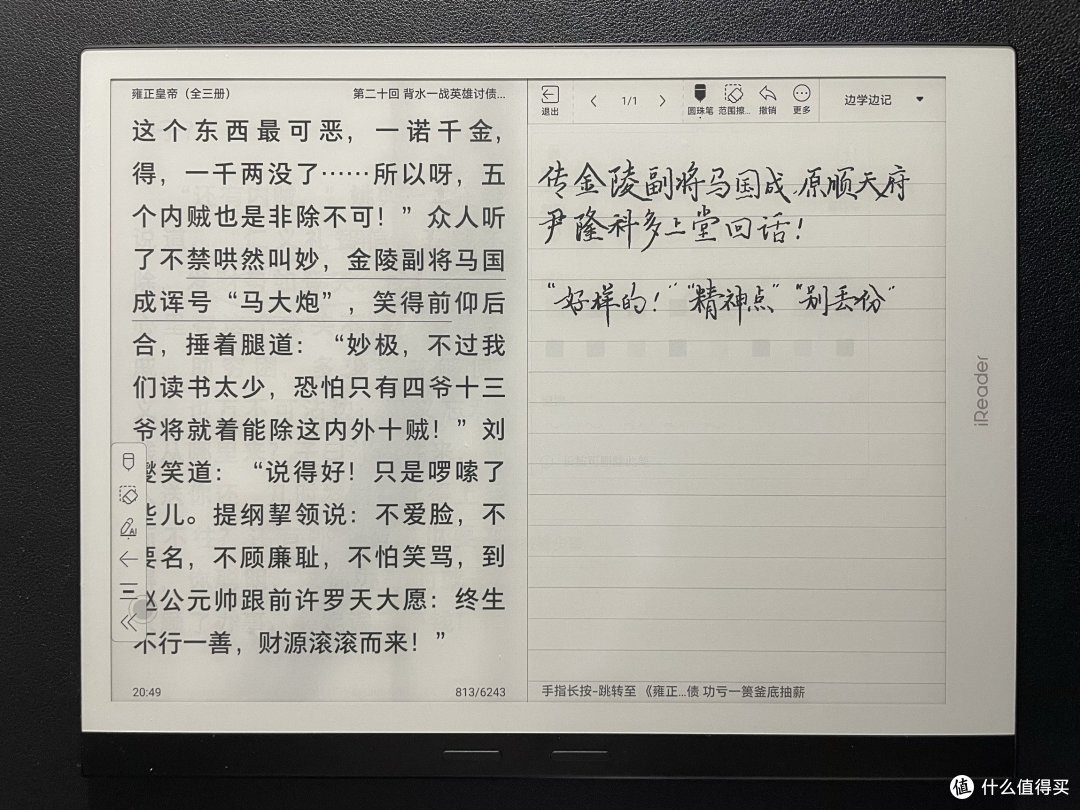 雍正皇帝（全三册）
第二十回 背水一战英雄讨债...
这个东西最可恶，一诺千金，
得，一千两没了……所以呀，五
个内贼也是非除不可！”众人听
了不禁哄然叫妙，金陵副将马国
成诨号“马大炮”，笑得前仰后
合，捶着腿道：“妙极，不过我
们读书太少，恐怕只有四爷十三
爷将就着能除这内外十贼！”刘
笑道：“说得好！只是啰嗦了
些儿。提纲挈领说：不爱脸，不
要名，不顾廉耻，不怕笑骂，到
赵公元帅跟前许罗天大愿：终生
不行一善，财源滚滚而来！”
20:49
813/6243
退出
1/1
圆珠笔
范围擦...
撤销
更多
边学边记
传金陵副将马国成、原顺天府
尹隆科多上堂回话！
“好样的！”“精神点”“别丢份”
手指长按-跳转至 《雍正...债 功亏一篑釜底抽薪
AI
iReader
值 什么值得买